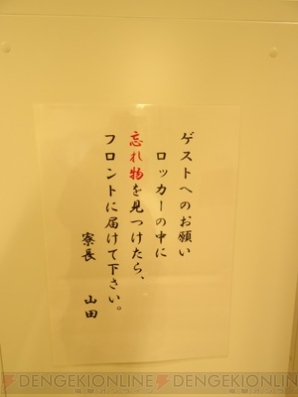 ゲストへのお願い
ロッカーの中に
忘れ物を見つけたら、
フロントに届けて下さい。
寮長 山田
DENGEKIONLINE
DENGEKIONLINE